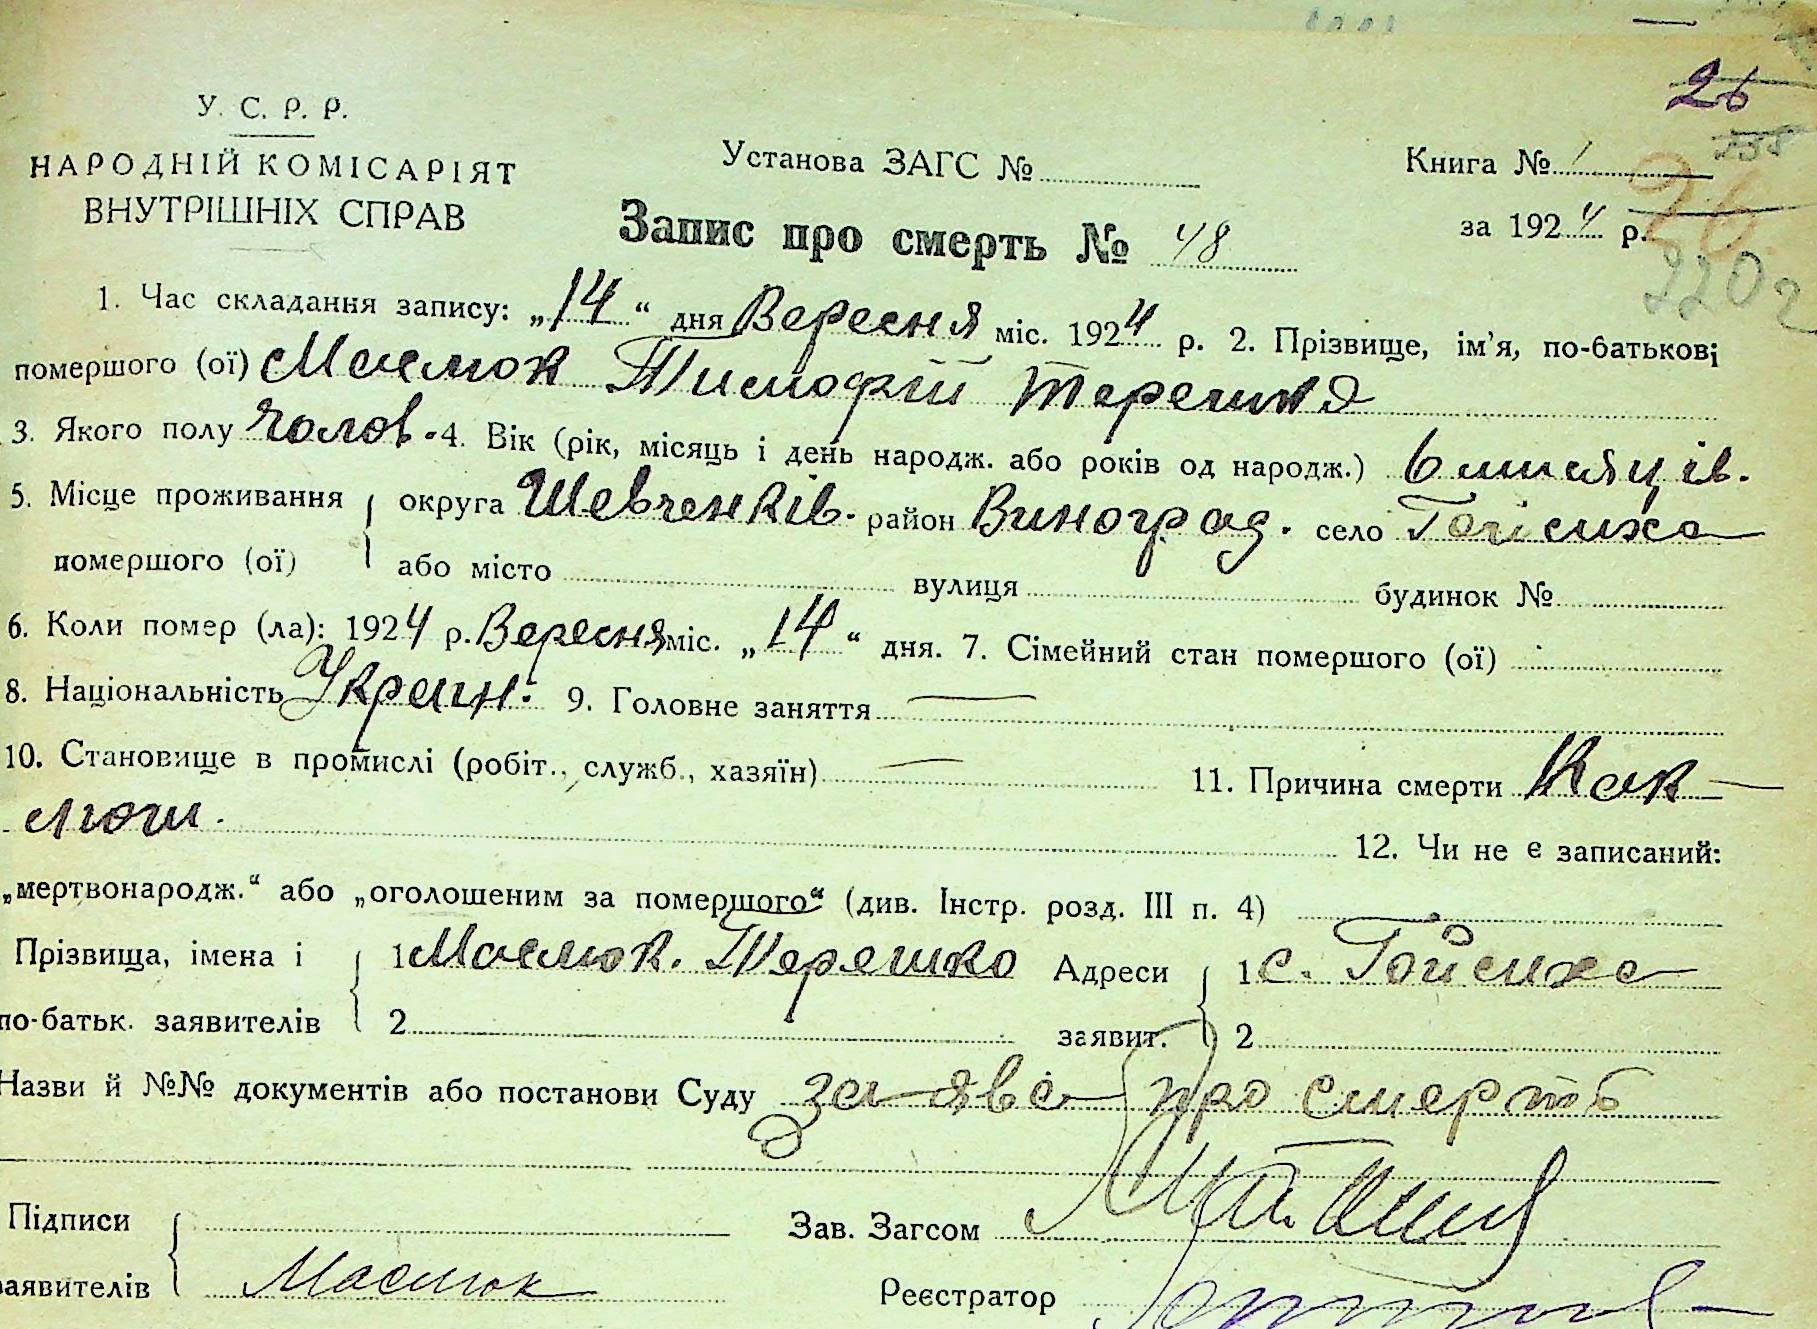 26
У. С. Р. Р.
НАРОДНІЙ КОМІСАРІЯТ
ВНУТРІШНІХ СПРАВ
Установа ЗАГС №
Книга № 1
Запис про смерть № 48
за 1924 р.
26
220
1. Час складання запису: „14“ дня Вересня міс. 1924 р. 2. Прізвище, ім’я, по-батькові
помершого (ої) Маслюк Тимофій Терешка
3. Якого полу чолов. 4. Вік (рік, місяць і день народж. або років од народж.) 6 місяців.
5. Місце проживання округа Шевченків. район Виноград. село Гойсиха
помершого (ої) або місто вулиця будинок №
6. Коли помер (ла): 1924 р. Вересня міс. „14“ дня. 7. Сімейний стан помершого (ої)
8. Національність Украін. 9. Головне заняття —
10. Становище в промислі (робіт., служб., хазяїн) — 11. Причина смерти Кок-
люш.
12. Чи не є записаний:
„мертвонародж.“ або „оголошеним за помершого“ (див. Інстр. розд. III п. 4)
Прізвища, імена і 1 Маслюк. Терешко Адреси 1 с. Гойсиха
по-батьк. заявителів 2 заявит. 2
Назви й №№ документів або постанови Суду заява про смерть
Підписи
Зав. Загсом
заявителів Маслюк
Реєстратор